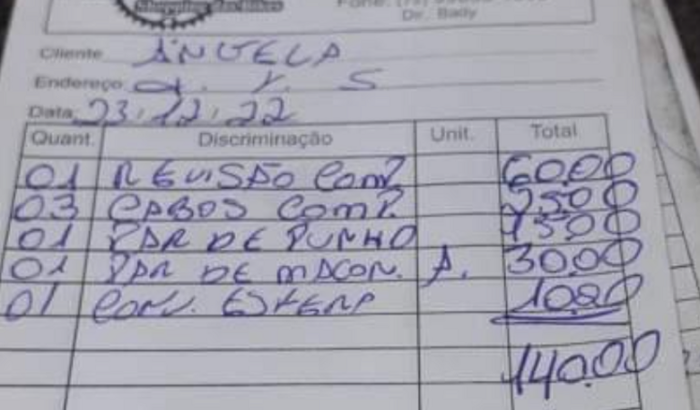 Shopping das Bikes
Dir. Bady
Cliente ANGELA
Endereço Q. Y. S
Data 23.12.22
Quant. Discriminação Unit. Total
01 REVISÃO COMP. 60.00
03 CABOS COMP. 25.00
01 PAR DE PUNHO 15.00
01 PAR DE MACON. A. 30.00
01 CONJ. ESFERA 10.00
140.00